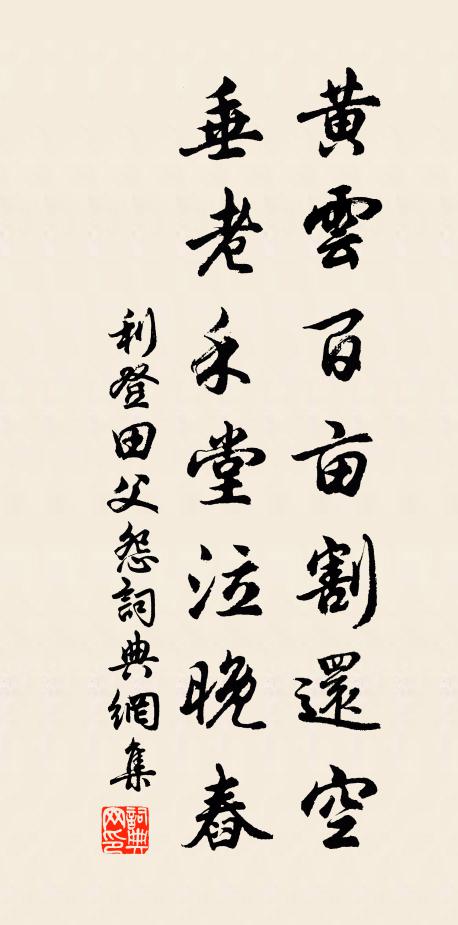 黃雲百亩割還空
垂老禾堂泣晚舂
利登田父怨詞典網集
詞典网印